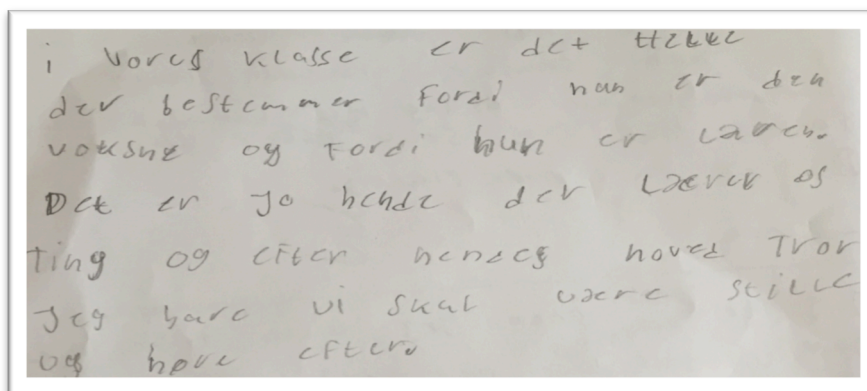 i vores klasse er det Helle
der bestemmer Fordi hun er den
voksne og Fordi hun er Læren.
Det er Jo hende der Lærer os
Ting og efter hendes hoved Tror
Jeg bare vi skal være stille
og høre efter.